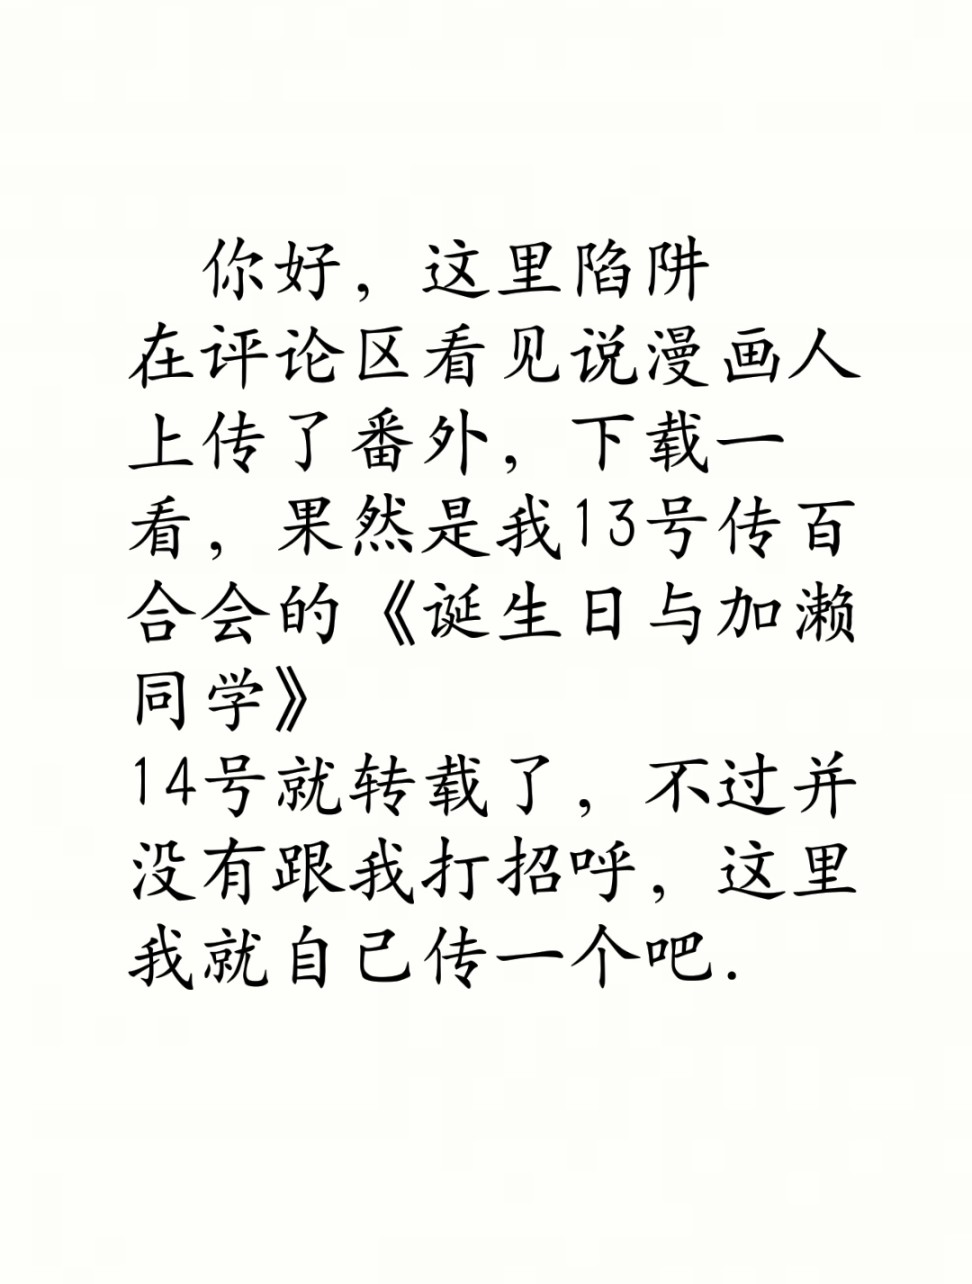 你好，这里陷阱
在评论区看见说漫画人
上传了番外，下载一
看，果然是我13号传百
合会的《诞生日与加濑
同学》
14号就转载了，不过并
没有跟我打招呼，这里
我就自己传一个吧.